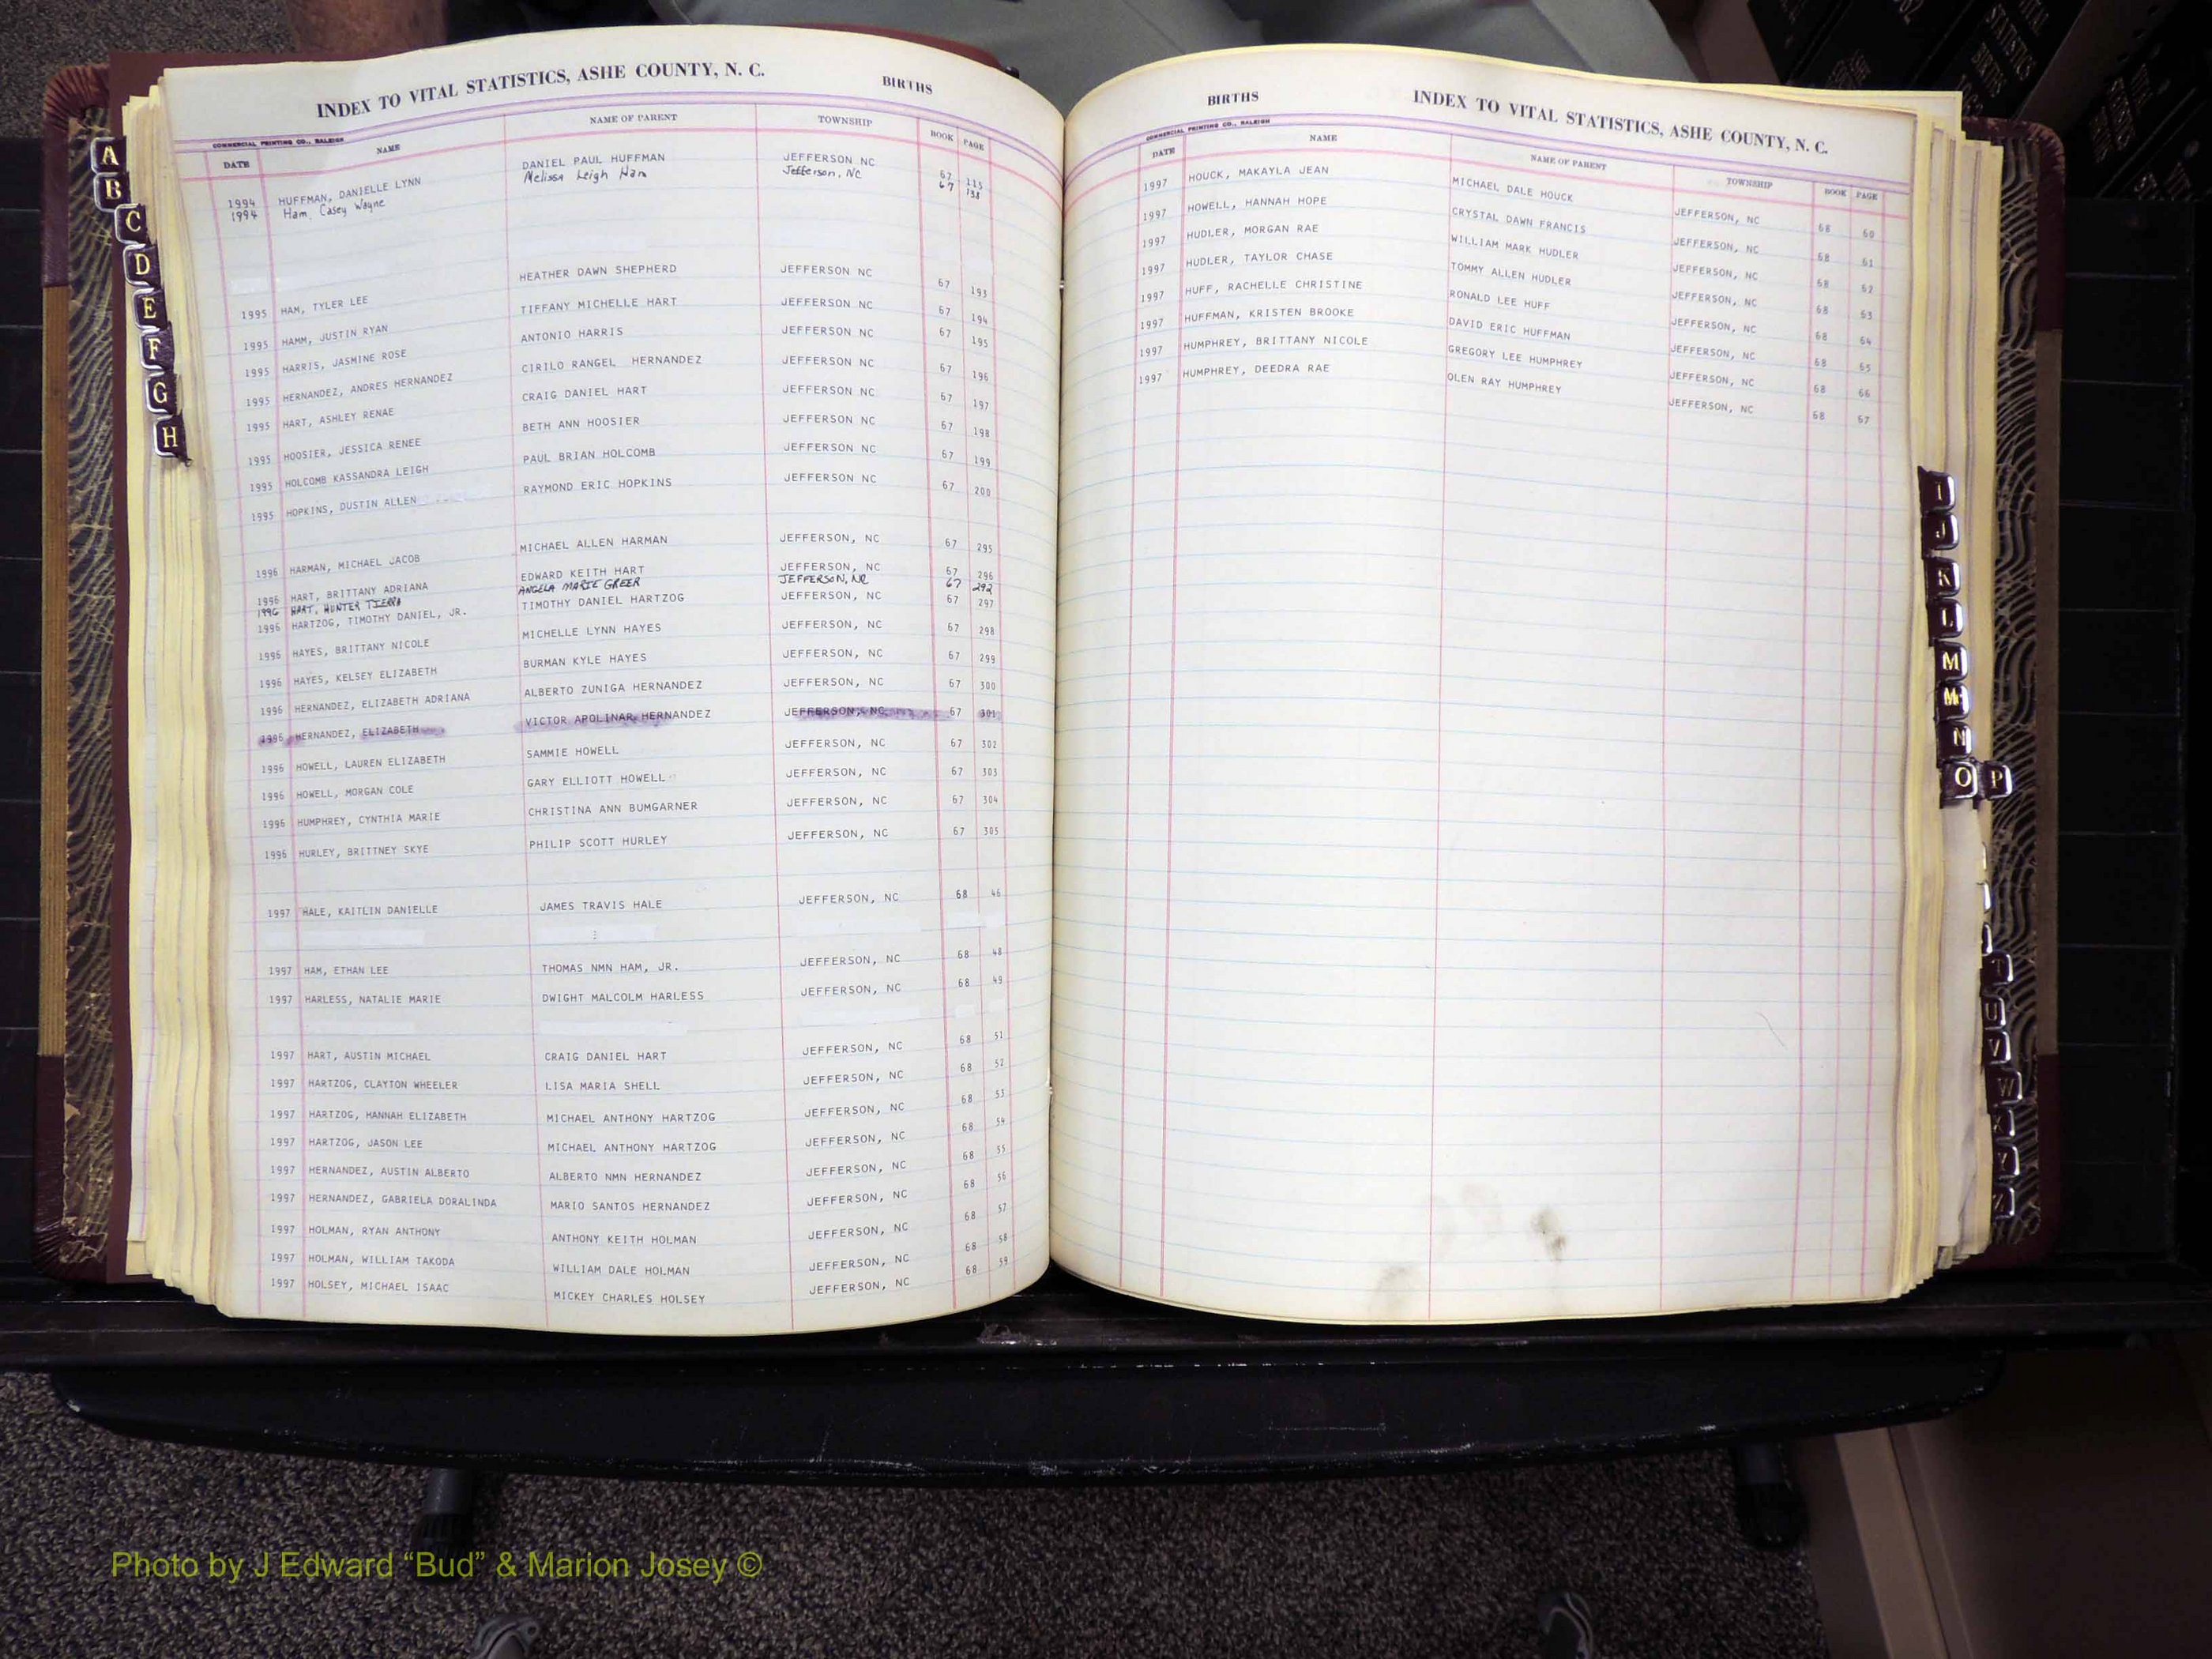 INDEX TO VITAL STATISTICS, ASHE COUNTY, N. C. BIRTHS
COMMERCIAL PRINTING CO., RALEIGH
DATE NAME NAME OF PARENT TOWNSHIP BOOK PAGE
1994 HUFFMAN, DANIELLE LYNN DANIEL PAUL HUFFMAN JEFFERSON NC 67 115
1994 Ham, Casey Wayne Melissa Leigh Ham Jefferson, NC 67 138
1995 HAM, TYLER LEE HEATHER DAWN SHEPHERD JEFFERSON NC 67 193
1995 HAMM, JUSTIN RYAN TIFFANY MICHELLE HART JEFFERSON NC 67 194
1995 HARRIS, JASMINE ROSE ANTONIO HARRIS JEFFERSON NC 67 195
1995 HERNANDEZ, ANDRES HERNANDEZ CIRILO RANGEL HERNANDEZ JEFFERSON NC 67 196
1995 HART, ASHLEY RENAE CRAIG DANIEL HART JEFFERSON NC 67 197
1995 HOOSIER, JESSICA RENEE BETH ANN HOOSIER JEFFERSON NC 67 198
1995 HOLCOMB KASSANDRA LEIGH PAUL BRIAN HOLCOMB JEFFERSON NC 67 199
1995 HOPKINS, DUSTIN ALLEN RAYMOND ERIC HOPKINS JEFFERSON NC 67 200
1996 HARMAN, MICHAEL JACOB MICHAEL ALLEN HARMAN JEFFERSON, NC 67 295
1996 HART, BRITTANY ADRIANA EDWARD KEITH HART JEFFERSON, NC 67 296
1996 HART, HUNTER TIERRA ANGELA MARIE GREER JEFFERSON, NC 67 292
1996 HARTZOG, TIMOTHY DANIEL, JR. TIMOTHY DANIEL HARTZOG JEFFERSON, NC 67 297
1996 HAYES, BRITTANY NICOLE MICHELLE LYNN HAYES JEFFERSON, NC 67 298
1996 HAYES, KELSEY ELIZABETH BURMAN KYLE HAYES JEFFERSON, NC 67 299
1996 HERNANDEZ, ELIZABETH ADRIANA ALBERTO ZUNIGA HERNANDEZ JEFFERSON, NC 67 300
1996 HERNANDEZ, ELIZABETH VICTOR APOLINAR HERNANDEZ JEFFERSON, NC 67 301
1996 HOWELL, LAUREN ELIZABETH SAMMIE HOWELL JEFFERSON, NC 67 302
1996 HOWELL, MORGAN COLE GARY ELLIOTT HOWELL JEFFERSON, NC 67 303
1996 HUMPHREY, CYNTHIA MARIE CHRISTINA ANN BUMGARNER JEFFERSON, NC 67 304
1996 HURLEY, BRITTNEY SKYE PHILIP SCOTT HURLEY JEFFERSON, NC 67 305
1997 HALE, KAITLIN DANIELLE JAMES TRAVIS HALE JEFFERSON, NC 68 46
1997 HAM, ETHAN LEE THOMAS NMN HAM, JR. JEFFERSON, NC 68 48
1997 HARLESS, NATALIE MARIE DWIGHT MALCOLM HARLESS JEFFERSON, NC 68 49
1997 HART, AUSTIN MICHAEL CRAIG DANIEL HART JEFFERSON, NC 68 51
1997 HARTZOG, CLAYTON WHEELER LISA MARIA SHELL JEFFERSON, NC 68 52
1997 HARTZOG, HANNAH ELIZABETH MICHAEL ANTHONY HARTZOG JEFFERSON, NC 68 53
1997 HARTZOG, JASON LEE MICHAEL ANTHONY HARTZOG JEFFERSON, NC 68 54
1997 HERNANDEZ, AUSTIN ALBERTO ALBERTO NMN HERNANDEZ JEFFERSON, NC 68 55
1997 HERNANDEZ, GABRIELA DORALINDA MARIO SANTOS HERNANDEZ JEFFERSON, NC 68 56
1997 HOLMAN, RYAN ANTHONY ANTHONY KEITH HOLMAN JEFFERSON, NC 68 57
1997 HOLMAN, WILLIAM TAKODA WILLIAM DALE HOLMAN JEFFERSON, NC 68 58
1997 HOLSEY, MICHAEL ISAAC MICKEY CHARLES HOLSEY JEFFERSON, NC 68 59
A
B
C
D
E
F
G
H
BIRTHS INDEX TO VITAL STATISTICS, ASHE COUNTY, N. C.
COMMERCIAL PRINTING CO., RALEIGH
DATE NAME NAME OF PARENT TOWNSHIP BOOK PAGE
1997 HOUCK, MAKAYLA JEAN MICHAEL DALE HOUCK JEFFERSON, NC 68 60
1997 HOWELL, HANNAH HOPE CRYSTAL DAWN FRANCIS JEFFERSON, NC 68 61
1997 HUDLER, MORGAN RAE WILLIAM MARK HUDLER JEFFERSON, NC 68 62
1997 HUDLER, TAYLOR CHASE TOMMY ALLEN HUDLER JEFFERSON, NC 68 63
1997 HUFF, RACHELLE CHRISTINE RONALD LEE HUFF JEFFERSON, NC 68 64
1997 HUFFMAN, KRISTEN BROOKE DAVID ERIC HUFFMAN JEFFERSON, NC 68 65
1997 HUMPHREY, BRITTANY NICOLE GREGORY LEE HUMPHREY JEFFERSON, NC 68 66
1997 HUMPHREY, DEEDRA RAE OLEN RAY HUMPHREY JEFFERSON, NC 68 67
I
J
K
L
M
M
N
O P
T
U
V
W
Y
Photo by J Edward “Bud” & Marion Josey ©